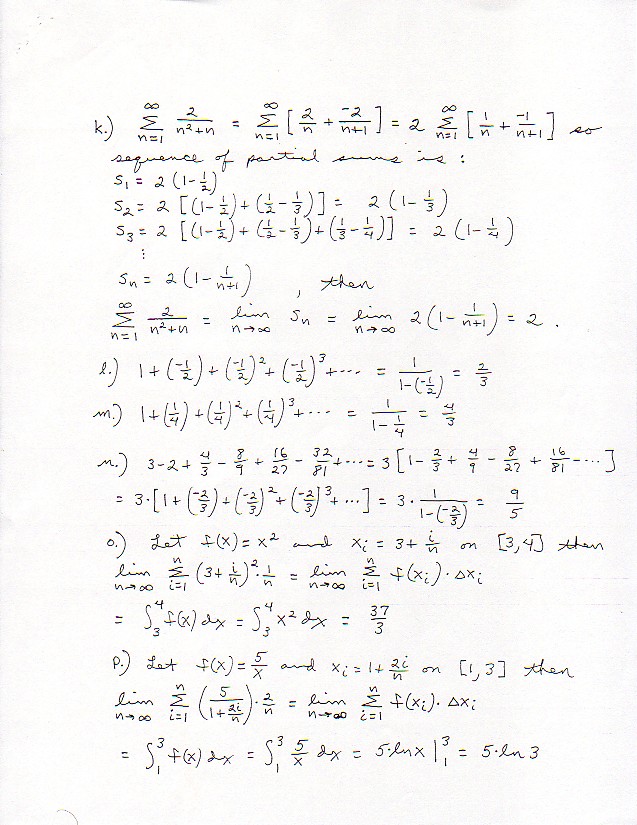 k.) ∞∑n=1 2/(n²+n) = ∞∑n=1 [2/n + -2/(n+1)] = 2 ∞∑n=1 [1/n + -1/(n+1)] so
sequence of partial sums is :
S₁ = 2 (1-1/2)
S₂ = 2 [(1-1/2)+(1/2-1/3)] = 2 (1-1/3)
S₃ = 2 [(1-1/2)+(1/2-1/3)+(1/3-1/4)] = 2 (1-1/4)
⋮
Sn = 2 (1-1/(n+1)) , then
∞∑n=1 2/(n²+n) = lim n→∞ Sn = lim n→∞ 2 (1-1/(n+1)) = 2 .
l.) 1+(-1/2)+(-1/2)²+(-1/2)³+⋯ = 1/(1-(-1/2)) = 2/3
m.) 1+(1/4)+(1/4)²+(1/4)³+⋯ = 1/(1-1/4) = 4/3
n.) 3-2+4/3-8/9+16/27-32/81+⋯ = 3 [1-2/3+4/9-8/27+16/81-⋯]
= 3·[1+(-2/3)+(-2/3)²+(-2/3)³+⋯] = 3·1/(1-(-2/3)) = 9/5
o.) Let f(x)=x² and xᵢ = 3+i/n on [3,4] then
lim n→∞ n∑i=1 (3+i/n)²·1/n = lim n→∞ n∑i=1 f(xᵢ)·Δxᵢ
= ∫₃⁴ f(x) dx = ∫₃⁴ x² dx = 37/3
p.) Let f(x)=5/x and xᵢ = 1+2i/n on [1,3] then
lim n→∞ n∑i=1 (5/(1+2i/n))·2/n = lim n→∞ n∑i=1 f(xᵢ)·Δxᵢ
= ∫₁³ f(x) dx = ∫₁³ 5/x dx = 5·ln x |₁³ = 5·ln 3